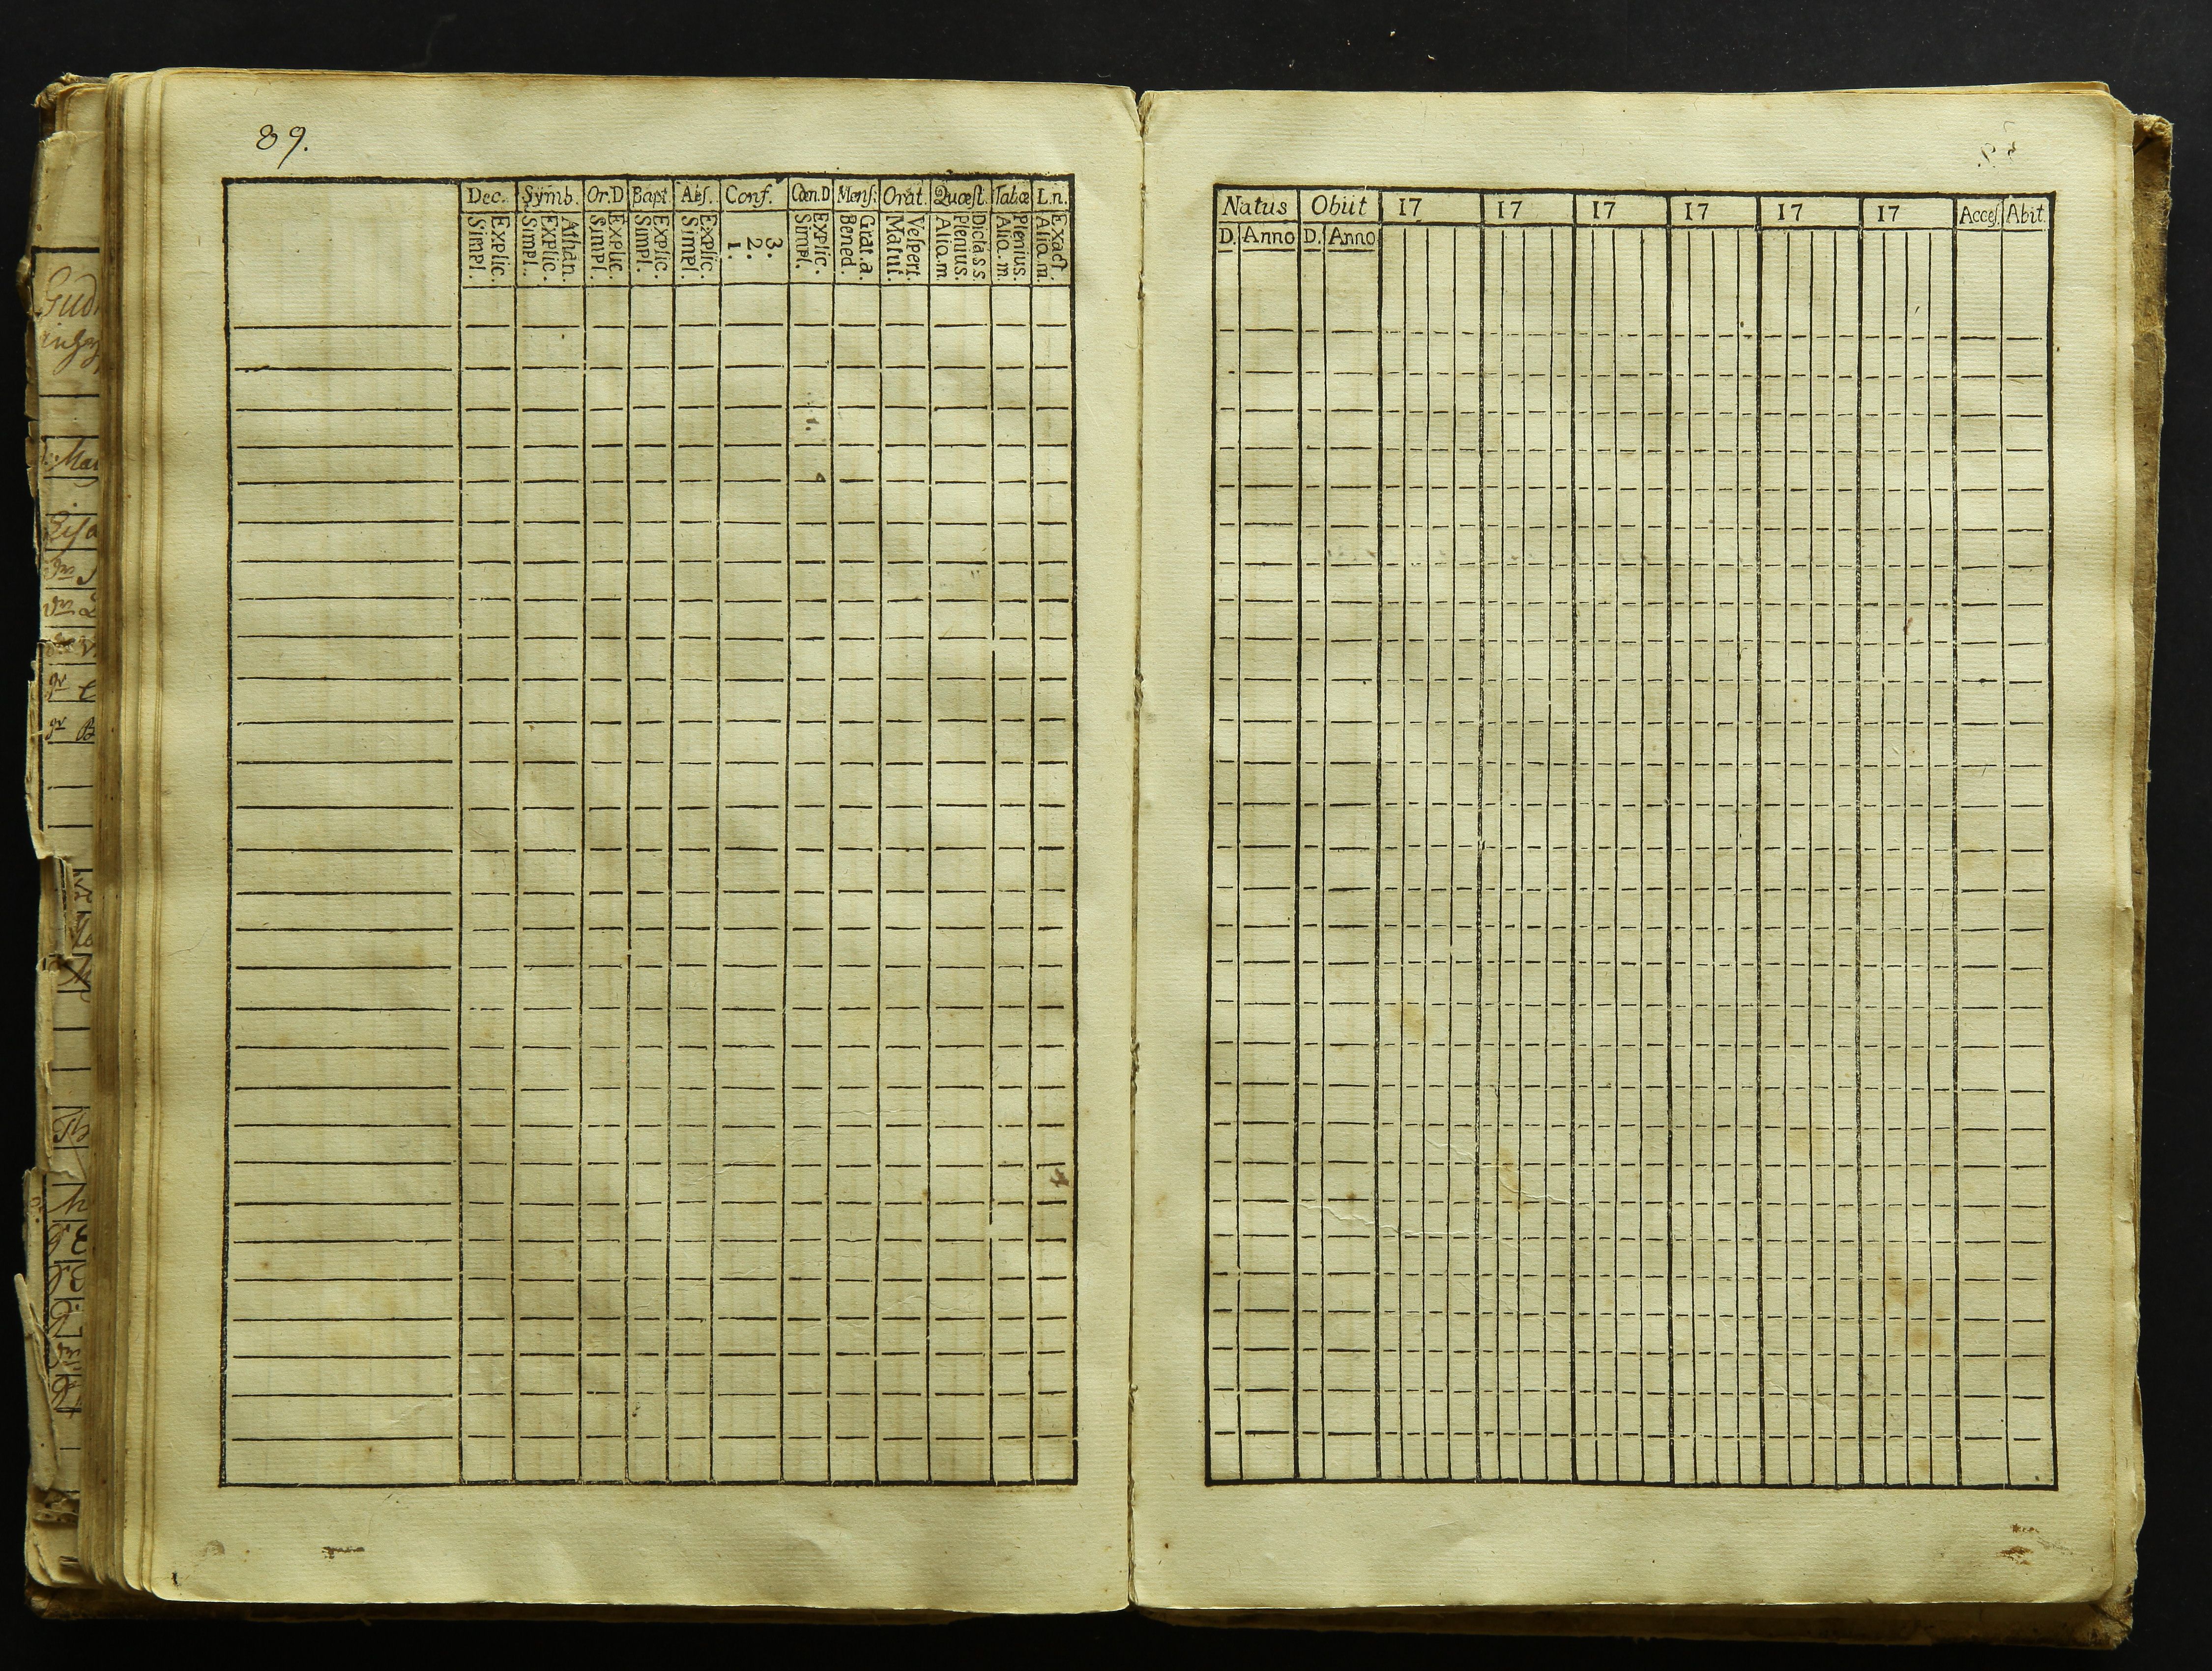 89.
Dec. Symb. Or.D Bapt. Abs. Conf. Cœn.D Mens: Orat. Quæst. Tabæ L.n.
Explic. Simpl. Athan. Explic. Simpl. Explic. Simpl. Explic. Simpl. Explic. Simpl. 3. 2. 1. Explic. Simpl. Grat.a. Bened. Vespert. Matut. Dicta.s.s. Plenius. Aliq.m Plenius. Aliq.m. Exact. Aliq.m.
Natus Obiit 17 17 17 17 17 17 Acces. Abit.
D. Anno D. Anno